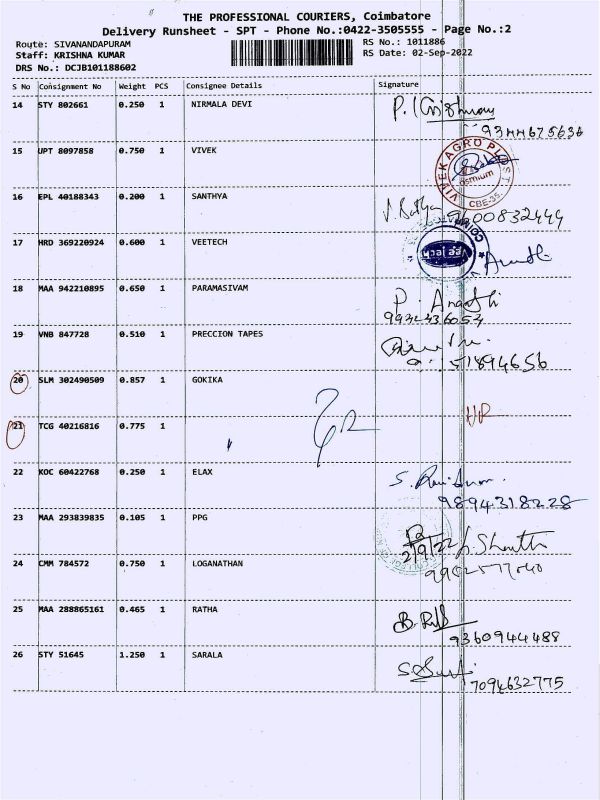 THE PROFESSIONAL COURIERS, Coimbatore
Delivery Runsheet - SPT - Phone No.:0422-3505555 - Page No.:2
Route: SIVANANDAPURAM RS No.: 1011886
Staff: KRISHNA KUMAR RS Date: 02-Sep-2022
DRS No.: DCJB101188602
S No Consignment No Weight PCS Consignee Details Signature
14 STY 802661 0.250 1 NIRMALA DEVI
9344675636
15 UPT 8097858 0.750 1 VIVEK
VIVEKAGRO PL
osmium
CBE-35.
16 EPL 40188343 0.200 1 SANTHYA
9600832449
17 HRD 369220924 0.600 1 VEETECH
18 MAA 942210895 0.650 1 PARAMASIVAM
19 VNB 847728 0.510 1 PRECCION TAPES
20 SLM 302490509 0.857 1 GOKIKA
21 TCG 40216816 0.775 1
22 KOC 60422768 0.250 1 ELAX
9894318228
23 MAA 293839835 0.105 1 PPG
2/9/22
24 CMM 784572 0.750 1 LOGANATHAN
25 MAA 288865161 0.465 1 RATHA
9360944488
26 STY 51645 1.250 1 SARALA
7094632775